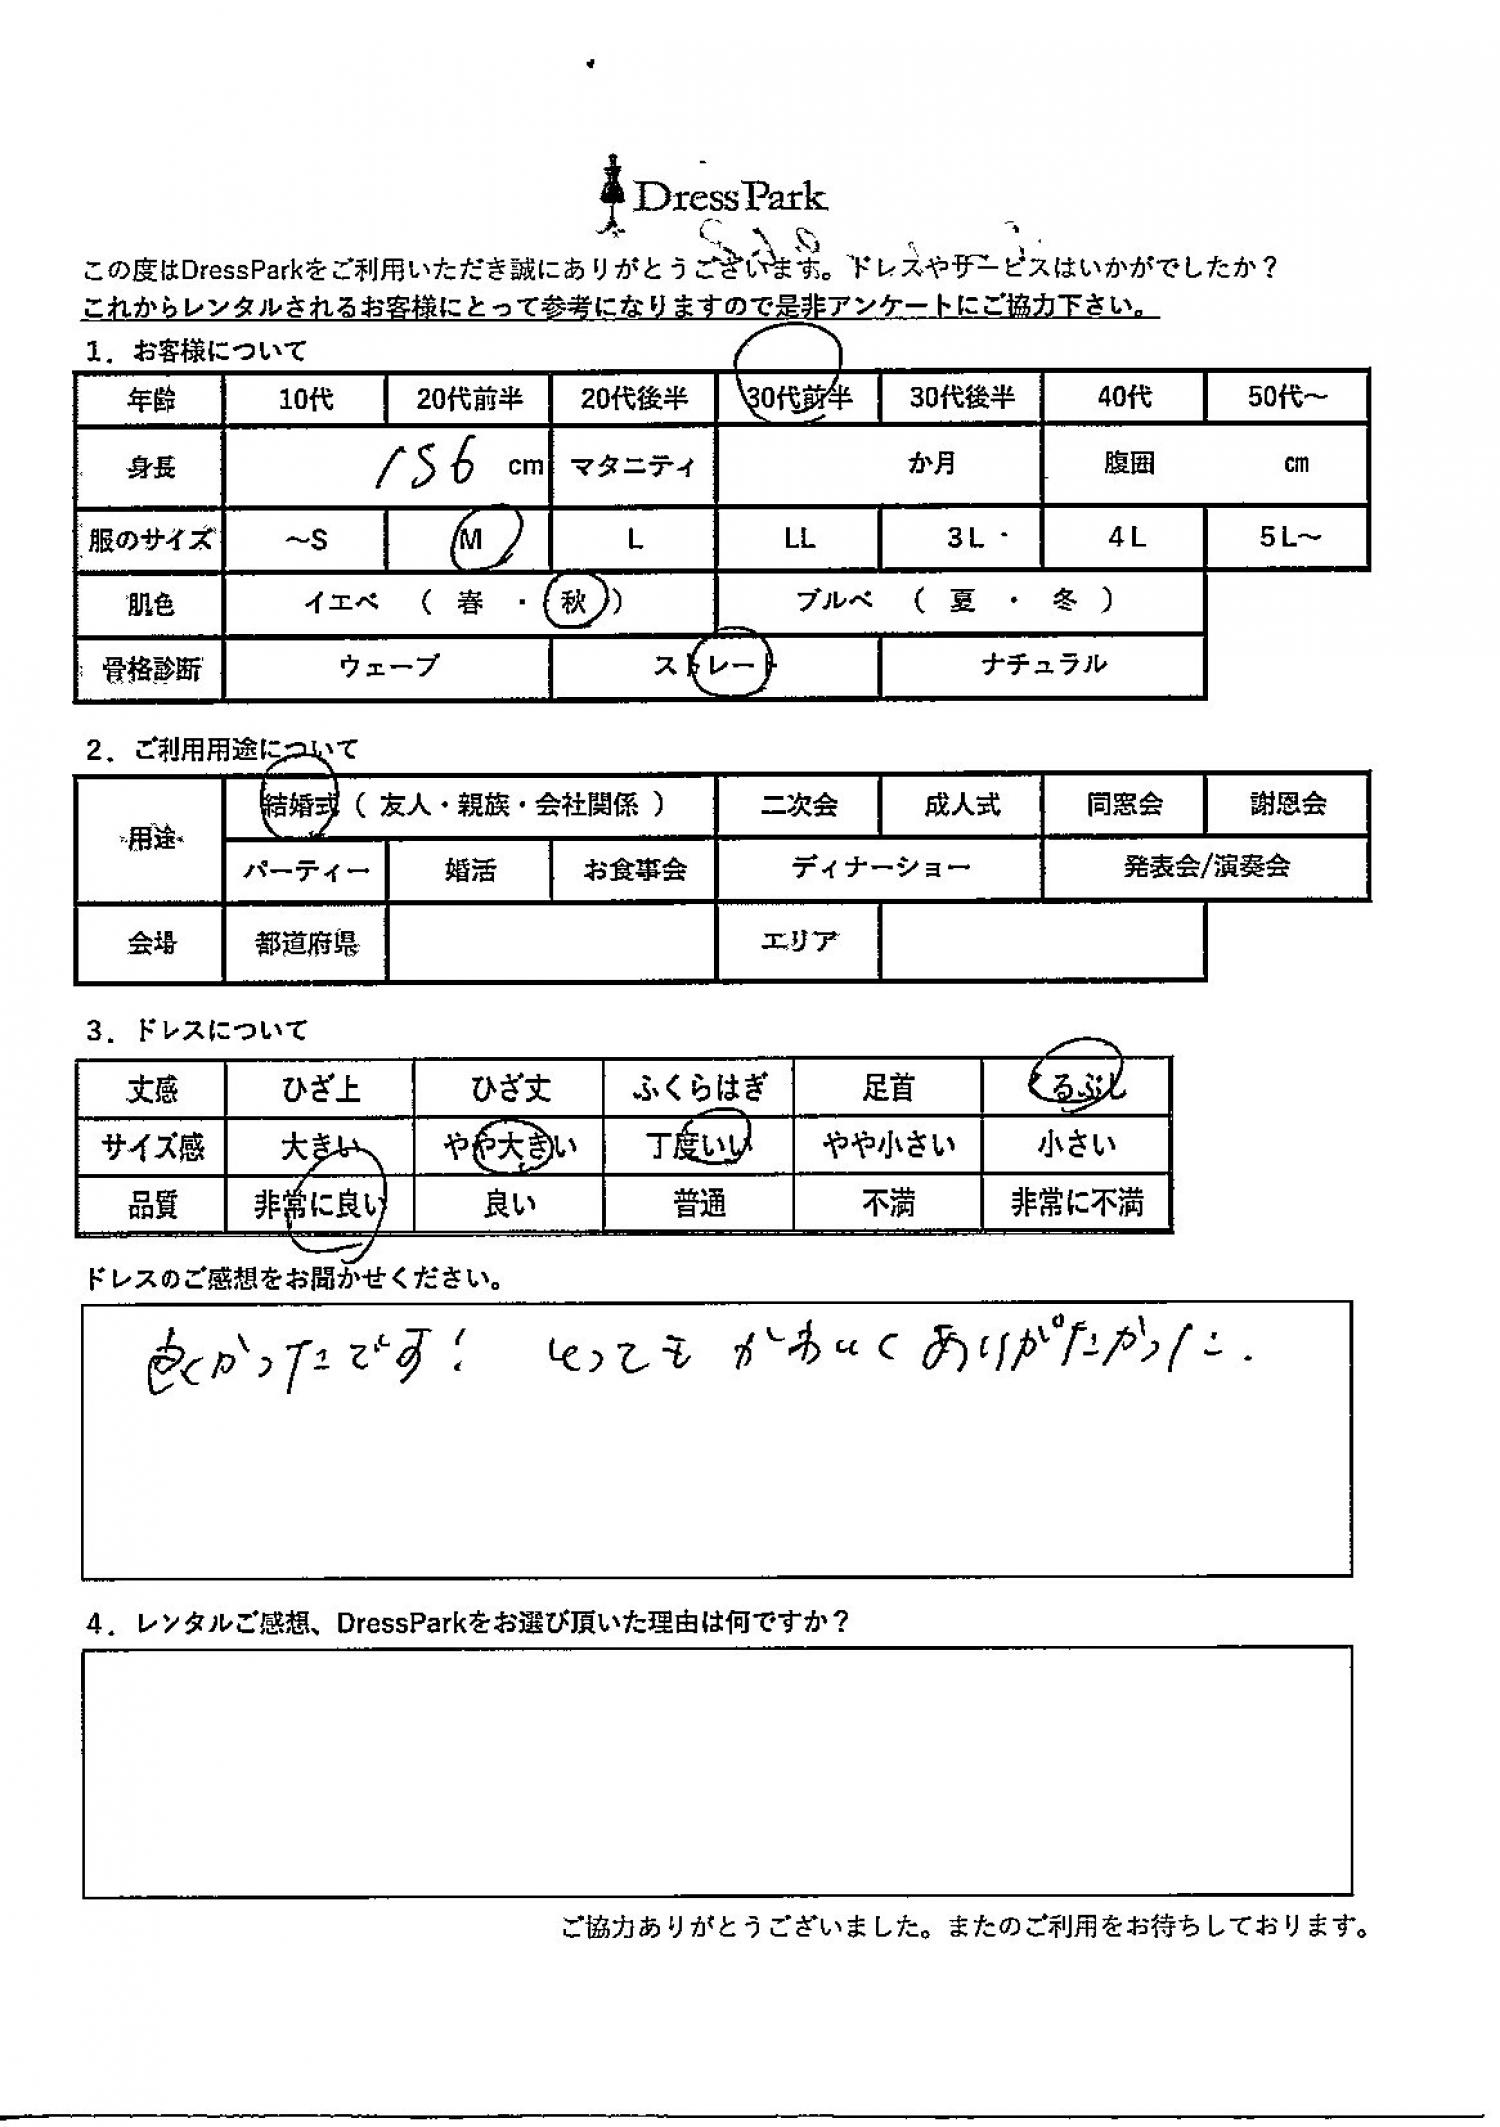 DressPark
この度はDressParkをご利用いただき誠にありがとうございます。ドレスやサービスはいかがでしたか？
これからレンタルされるお客様にとって参考になりますので是非アンケートにご協力下さい。
1．お客様について
年齢 10代 20代前半 20代後半 30代前半 30代後半 40代 50代～
身長 156 cm マタニティ か月 腹囲 cm
服のサイズ ～S M L LL 3L 4L 5L～
肌色 イエベ （ 春 ・ 秋 ） ブルベ （ 夏 ・ 冬 ）
骨格診断 ウェーブ ストレート ナチュラル
2．ご利用用途について
用途 結婚式（ 友人・親族・会社関係 ） 二次会 成人式 同窓会 謝恩会
パーティー 婚活 お食事会 ディナーショー 発表会/演奏会
会場 都道府県 エリア
3．ドレスについて
丈感 ひざ上 ひざ丈 ふくらはぎ 足首 くるぶし
サイズ感 大きい やや大きい 丁度いい やや小さい 小さい
品質 非常に良い 良い 普通 不満 非常に不満
ドレスのご感想をお聞かせください。
良かったです！ とっても かわいく ありがたかった.
4．レンタルご感想、DressParkをお選び頂いた理由は何ですか？
ご協力ありがとうございました。またのご利用をお待ちしております。